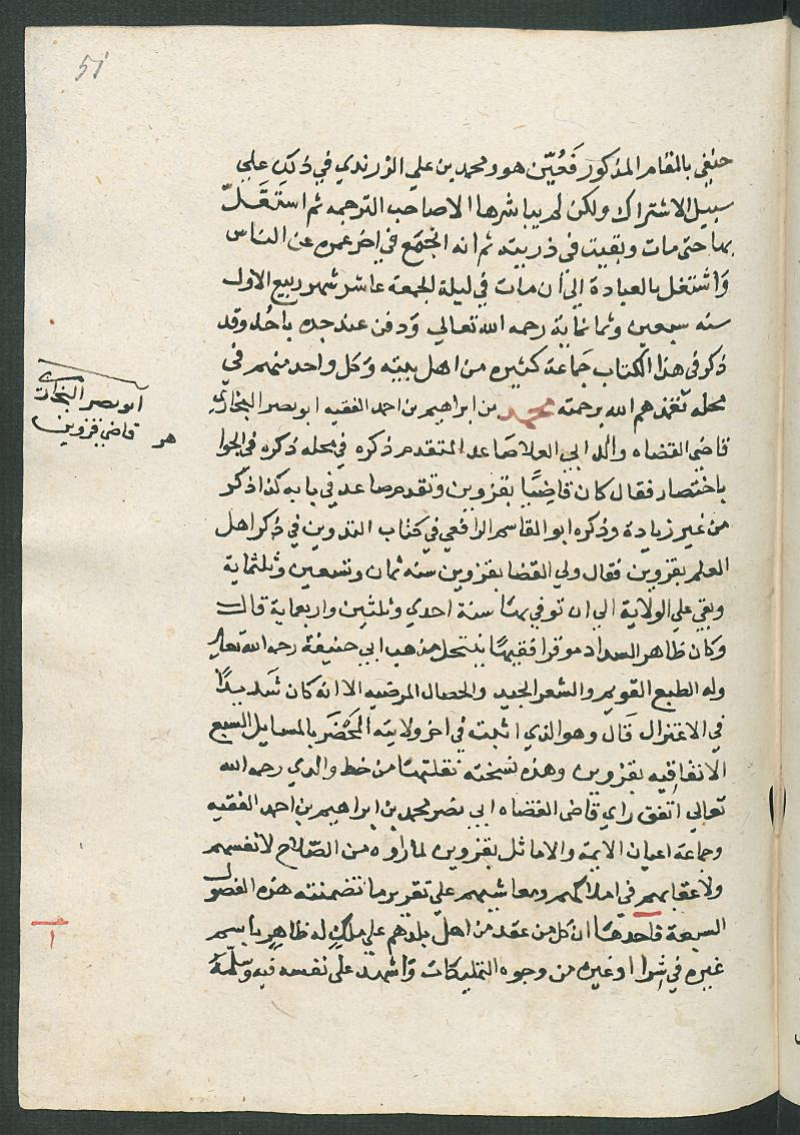 51
حنفي بالمقام المذكور فعين هو ومحمد بن علي الزرندي في ذلك علي
سبيل الاشتراك ولكن لم يباشرها الا صاحب الترجمه ثم استقل
بها حتى مات وبقيت في ذريته ثم انه انجمع في اخر عمره عن الناس
واشتغل بالعبادة الي ان مات في ليلة الجمعة عاشر شهر ربيع الاول
سنه سبعين وثمانماية رحمه الله تعالي ودفن عند جده باحد وقد
ذكر في هذا الكتاب جماعة كثيره من اهل بيته وكل واحد منهم في
محله تغمدهم الله برحمته محمد بن ابراهيم بن احمد الفقيه ابو نصر البخاري
قاضي القضاه والد ابي العلا صاعد المتقدم ذكره في محله ذكره في الجوا
باختصار فقال كان قاضيا بقزوين وتقدم صاعد في بابه كذا ذكر
من غير زيادة وذكره ابو القاسم الرافعي في كتاب التدوين في ذكر اهل
العلم بقزوين فقال ولي القضا بقزوين سنه ثمان وتسعين وثلثماية
وبقي علي الولاية الي ان توفي بها سنة احدي وثلثين واربعماية قال
وكان ظاهر السداد موقرا فقيها ينتحل مذهب ابي حنيفة رحمه الله تعالى
وله الطبع القويم والشعر الجيد والخصال المرضيه الا انه كان شديدا
في الاعتزال قال وهو الذي اثبت في اخر ولايته المحضر بالمسايل السبع
الاتفاقيه بقزوين وهذه نسخته نقلتها من خط والدي رحمه الله
تعالي اتفق راي قاضي القضاه ابي نصر محمد بن ابراهيم بن احمد الفقيه
وجماعة اعيان الايمة والاماثل بقزوين لما راوه من الصلاح لانفسهم
ولاعقابهم في املاكهم ومعاشيهم علي تقرير ما تضمنته هذه الفصول
السبعة فاحدها ان كل من عقد من اهل بلدهم علي ملك له ظاهر باسم
غيره في شرا او غيره من وجوه التمليكات واشهد على نفسه فيه وسلمه
ابو نصر البخاري
قاضي قزوين
هر
ا